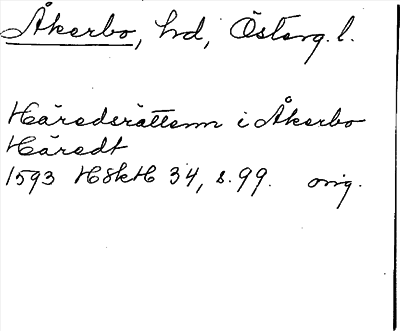 Åkerbo, hd, Österg. l.
Häradsrätten i Åkerbo
Häredt
1593 HSkH 34, s. 99. orig.